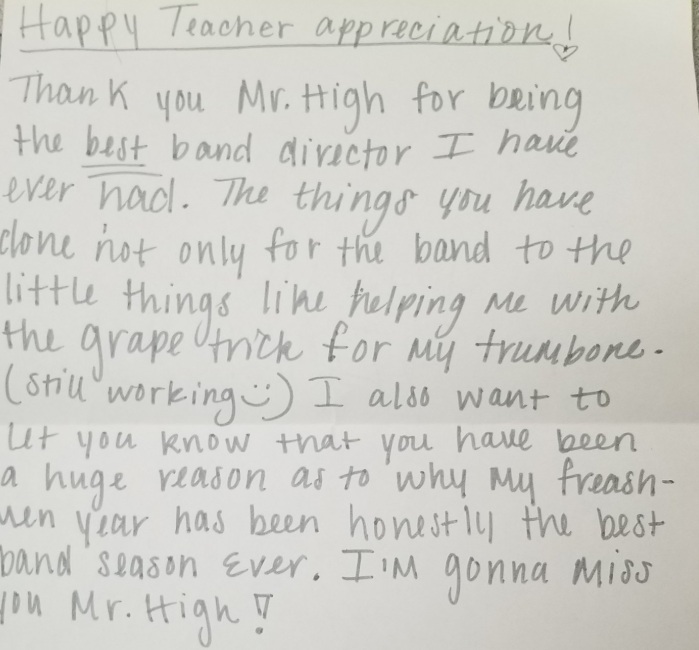 Happy Teacher appreciation! ♡
Thank you Mr. High for being
the best band director I have
ever had. The things you have
done not only for the band to the
little things like helping me with
the grape trick for my trumbone.
(still working :)) I also want to
let you know that you have been
a huge reason as to why my freash-
men year has been honestly the best
band season ever. I'm gonna miss
you Mr. High!